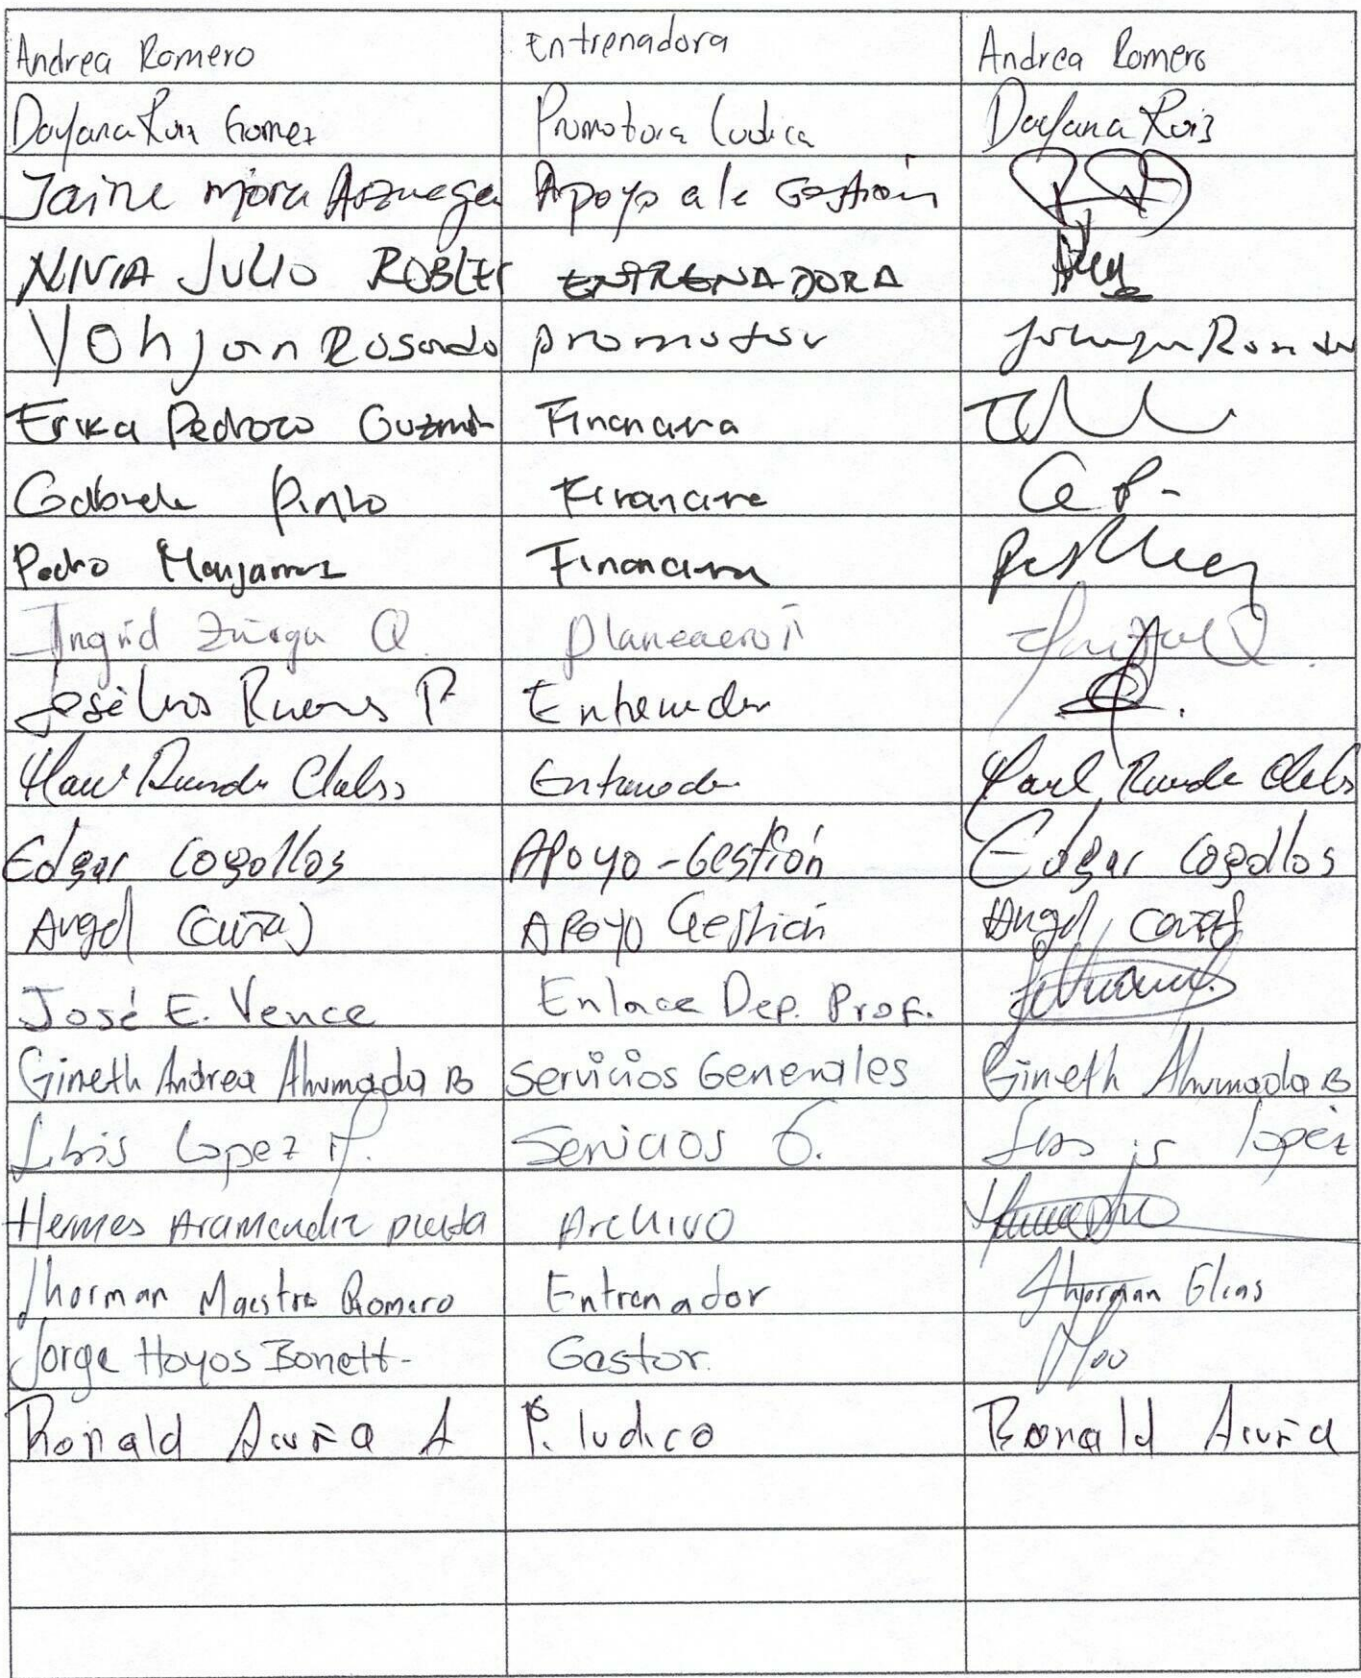 Andrea Romero Entrenadora Andrea Romero
Dayana Ruiz Gomez Promotora Ludica Dayana Ruiz
Jaine Mora Apoyo a la Gestión
NIVIA JULIO ROBLES ENTRENADORA
Yohjan Rosado promotor
Erika Pedrozo Guzmán Financiera
Gabriela Pinto Financiera
Pedro Manjarrez Financiera
Ingrid Zúñiga Q. planeación
José Luis P. Entrenador
Entrenador
Edgar Cogollos Apoyo-Gestión Edgar Cogollos
Angel Apoyo Gestión Angel
José E. Vence Enlace Dep. Prof.
Gineth Andrea Ahumada B Servicios Generales Gineth Ahumada B
Lopez Servicios G. lopez
Hermes Aramendiz Archivo
Jhorman Maestre Romero Entrenador Jhorman Elias
Jorge Hoyos Bonett- Gestor.
Ronald Acuña A P. ludico Ronald Acuña